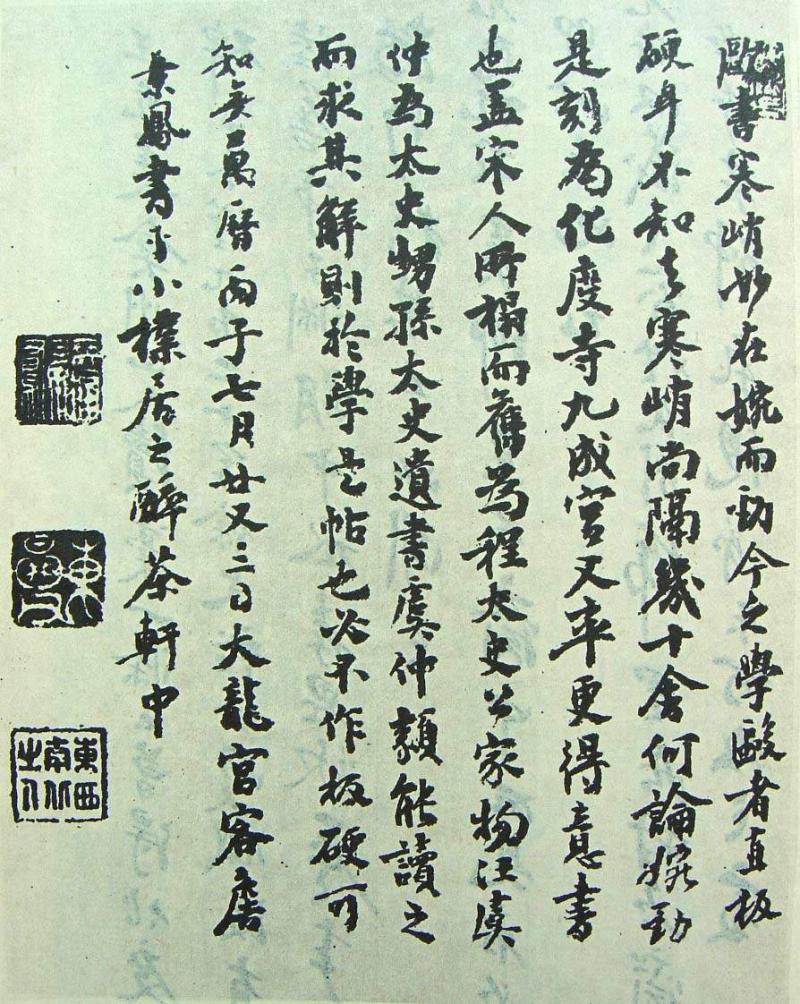 歐書寒峭妙在婉而勁今之學歐者直板
硬耳不知去寒峭尚隔幾十舍何論婉勁
是刻為化度寺九成宮又率更得意書
也盖宋人所榻而舊為程太史公家物汪虞
仲為太史甥孫太史遺書虞仲類能讀之
而求其解則於學是帖也必不作板硬可
知矣萬曆丙子七月廿又三日大龍宮客
葉鳳書于小檏居之醉茶軒中
東西南北之人